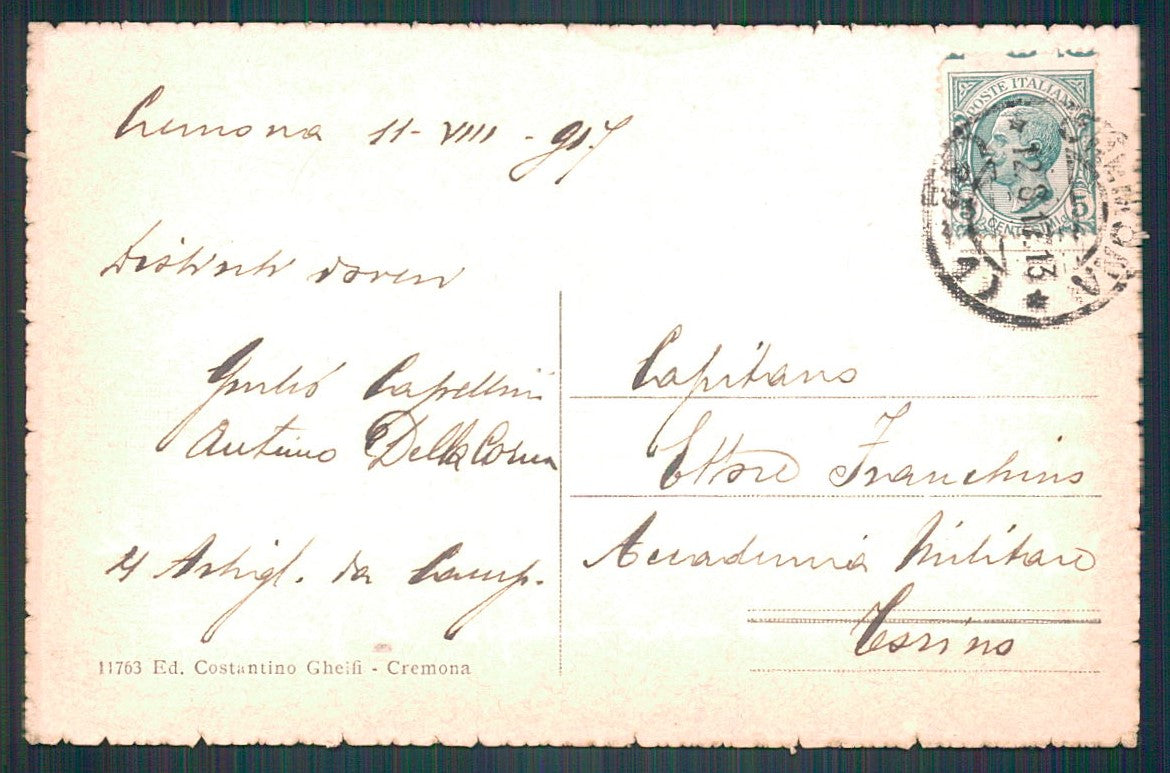 Cremona 11-VIII-917
Distinti doveri
Giulio Capellini
Della
4 Artigl. da Camp.
11763 Ed. Costantino Gheisi - Cremona
POSTE ITALIANE
5 5
CENTESIMI
12.8.17.13
Capitano
Ettore Franchino
Accademia Militare
Torino